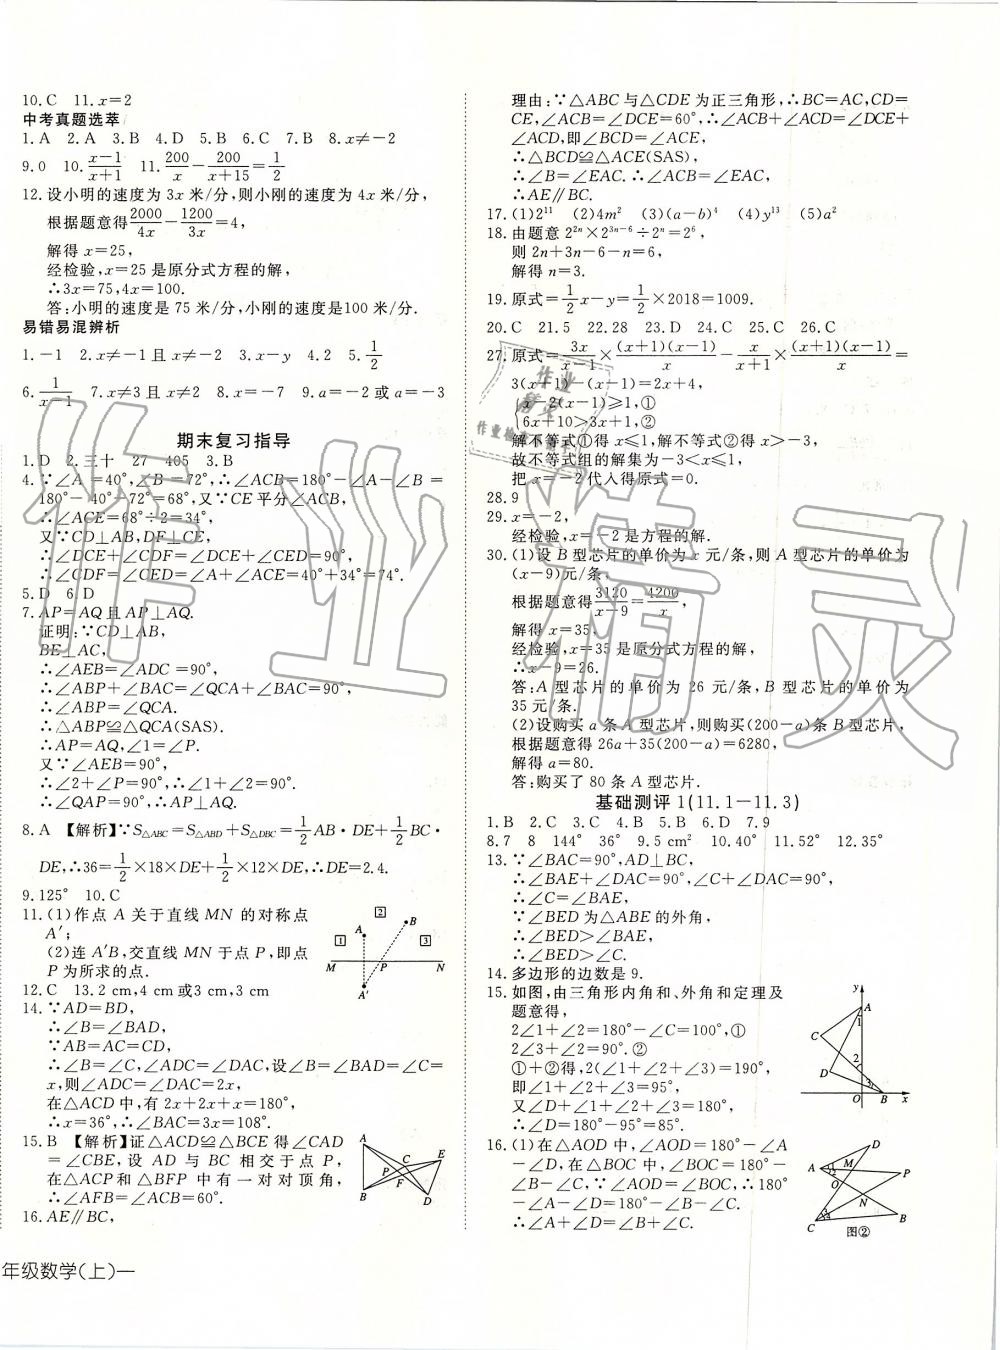 10. C  11. x=2
中考真题选萃
1. A  2. A  3. B  4. D  5. B  6. C  7. B  8. x≠-2
9. 0  10. (x-1)/(x+1)  11. 200/x - 200/(x+15) = 1/2
12. 设小明的速度为 3x 米/分,则小刚的速度为 4x 米/分,
根据题意得 2000/4x - 1200/3x = 4,
解得 x=25,
经检验,x=25 是原分式方程的解,
∴3x=75,4x=100.
答:小明的速度是 75 米/分,小刚的速度是100 米/分.
易错易混辨析
1. -1  2. x≠-1 且 x≠-2  3. x-y  4. 2  5. 1/2
6. 1/(x-1)  7. x≠3 且 x≠2  8. x=-7  9. a=-2 或 a=-3
期末复习指导
1. D  2. 三十  27  405  3. B
4. ∵∠A=40°,∠B=72°,∴∠ACB=180°-∠A-∠B=
180°-40°-72°=68°,又∵CE 平分∠ACB,
∴∠ACE=68°÷2=34°,
又∵CD⊥AB,DF⊥CE,
∴∠DCE+∠CDF=∠DCE+∠CED=90°,
∴∠CDF=∠CED=∠A+∠ACE=40°+34°=74°.
5. D  6. D
7. AP=AQ 且 AP⊥AQ.
证明:∵CD⊥AB,
BE⊥AC,
∴∠AEB=∠ADC=90°,
∴∠ABP+∠BAC=∠QCA+∠BAC=90°,
∴∠ABP=∠QCA,
∴△ABP≌△QCA(SAS).
∴AP=AQ,∠1=∠P.
又∵∠AEB=90°,
∴∠2+∠P=90°,∴∠1+∠2=90°.
∴∠QAP=90°,∴AP⊥AQ.
8. A 【解析】∵S△ABC=S△ABD+S△DBC=1/2 AB·DE+1/2 BC·
DE,∴36=1/2×18×DE+1/2×12×DE,∴DE=2.4.
9. 125°  10. C
11. (1)作点 A 关于直线 MN 的对称点
A′;
(2)连 A′B,交直线 MN 于点 P,即点
P 为所求的点.
1 2 3 A B M P N A′
12. C  13. 2 cm,4 cm 或3 cm,3 cm
14. ∵AD=BD,
∴∠B=∠BAD,
∵AB=AC=CD,
∴∠B=∠C,∠ADC=∠DAC,设∠B=∠BAD=∠C=
x,则∠ADC=∠DAC=2x,
在△ACD 中,有 2x+2x+x=180°,
∴x=36°,∴∠BAC=3x=108°.
15. B 【解析】证△ACD≌△BCE 得∠CAD
=∠CBE,设 AD 与 BC 相交于点 P,
在△ACP和△BFP 中有一对对顶角,
∴∠AFB=∠ACB=60°.
A C E P F B D
16. AE∥BC,
年级数学(上)—
理由:∵△ABC 与△CDE 为正三角形,∴BC=AC,CD=
CE,∠ACB=∠DCE=60°,∴∠ACB+∠ACD=∠DCE+
∠ACD,即∠BCD=∠ACE,
∴△BCD≌△ACE(SAS),
∴∠B=∠EAC.∴∠ACB=∠EAC,
∴AE∥BC.
17. (1)2¹¹  (2)4m²  (3)(a-b)⁴  (4)y¹³  (5)a²
18. 由题意 2²ⁿ×2³ⁿ⁻⁶÷2ⁿ=2⁶,
则 2n+3n-6-n=6,
解得 n=3.
19. 原式=1/2 x-y=1/2×2018=1009.
20. C  21. 5  22. 28  23. D  24. C  25. C  26. C
27. 原式=3x/(x-1)×(x+1)(x-1)/x - x/(x+1)×(x+1)(x-1)/x=
3(x+1)-(x-1)=2x+4,
{x-2(x-1)≥1,①
6x+10>3x+1,②
解不等式①得 x≤1,解不等式②得 x>-3,
故不等式组的解集为-3<x≤1,
把 x=-2 代入得原式=0.
28. 9
29. x=-2,
经检验,x=-2是方程的解.
30. (1)设 B 型芯片的单价为 x 元/条,则 A 型芯片的单价为
(x-9)元/条,
根据题意得 3120/(x-9)=4200/x,
解得 x=35,
经检验,x=35 是原分式方程的解,
∴x-9=26.
答:A 型芯片的单价为 26 元/条,B 型芯片的单价为
35 元/条.
(2)设购买 a 条 A 型芯片,则购买(200-a)条 B 型芯片,
根据题意得 26a+35(200-a)=6280,
解得 a=80.
答:购买了 80 条 A 型芯片.
基础测评 1(11.1-11.3)
1. B  2. C  3. C  4. B  5. B  6. D  7. 9
8. 7  8  144°  36°  9. 5 cm²  10. 40°  11. 52°  12. 35°
13. ∵∠BAC=90°,AD⊥BC,
∴∠BAE+∠DAC=90°,∠C+∠DAC=90°,
∴∠C=∠BAE,
∵∠BED 为△ABE 的外角,
∴∠BED>∠BAE,
∴∠BED>∠C.
14. 多边形的边数是 9.
15. 如图,由三角形内角和、外角和定理及
题意得,
2∠1+∠2=180°-∠C=100°,①
2∠3+∠2=90°.②
①+②得,2(∠1+∠2+∠3)=190°,
即∠1+∠2+∠3=95°,
又∠D+∠1+∠2+∠3=180°,
∴∠D=180°-95°=85°.
y A 1 C 2 D 3 O B x
16. (1)在△AOD 中,∠AOD=180°-∠A
-∠D,在△BOC 中,∠BOC=180°-
∠B-∠C,∵∠AOD=∠BOC,∴180°
-∠A-∠D=180°-∠B-∠C.
∴∠A+∠D=∠B+∠C.
D A M P O N C B
图②
作业精灵